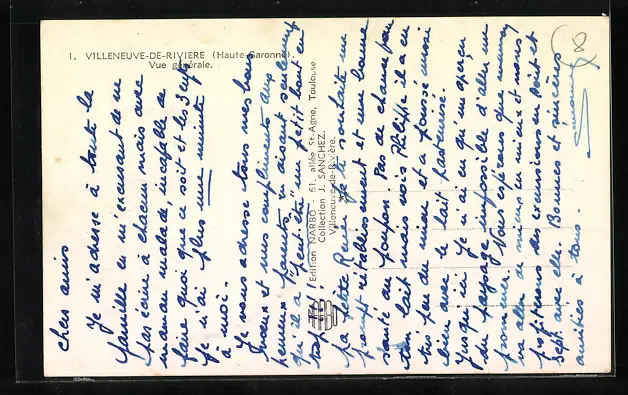 1. VILLENEUVE-DE-RIVIERE (Haute-Garonne).
Vue générale.
Edition NARBO - 61, allée St-Agne, Toulouse
Collection J. SANCHEZ.
Villeneuve-de-Rivière.
chers amis
Je m'adresse à toute la
famille en m'excusant de ne
pas écrire à chacun mais avec
maman malade, incapable de
faire quoi que ce soit et les 3
Je n'ai plus une minute
à moi.
Je vous adresse tous mes bons
et mes compliments aux
heureux parents, en disant seulement
qu'il a "peut-être" un petit bout en
trop!
La petite je te souhaite un
prompt rétablissement et une bonne
santé au poupon. Pas de chance pour
ton lait mais vois Philippe il a eu
très peu du mien et a poussé aussi
bien avec le lait pasteurisé.
Jusqu'ici je n'ai eu qu'un aperçu
du paysage impossible d'aller me
promener. Nous espérons que maman
va aller de mieux en mieux et nous
profiterons des excursions en Août et
Sept avec elle. Bonnes et sincères
amitiés à tous.